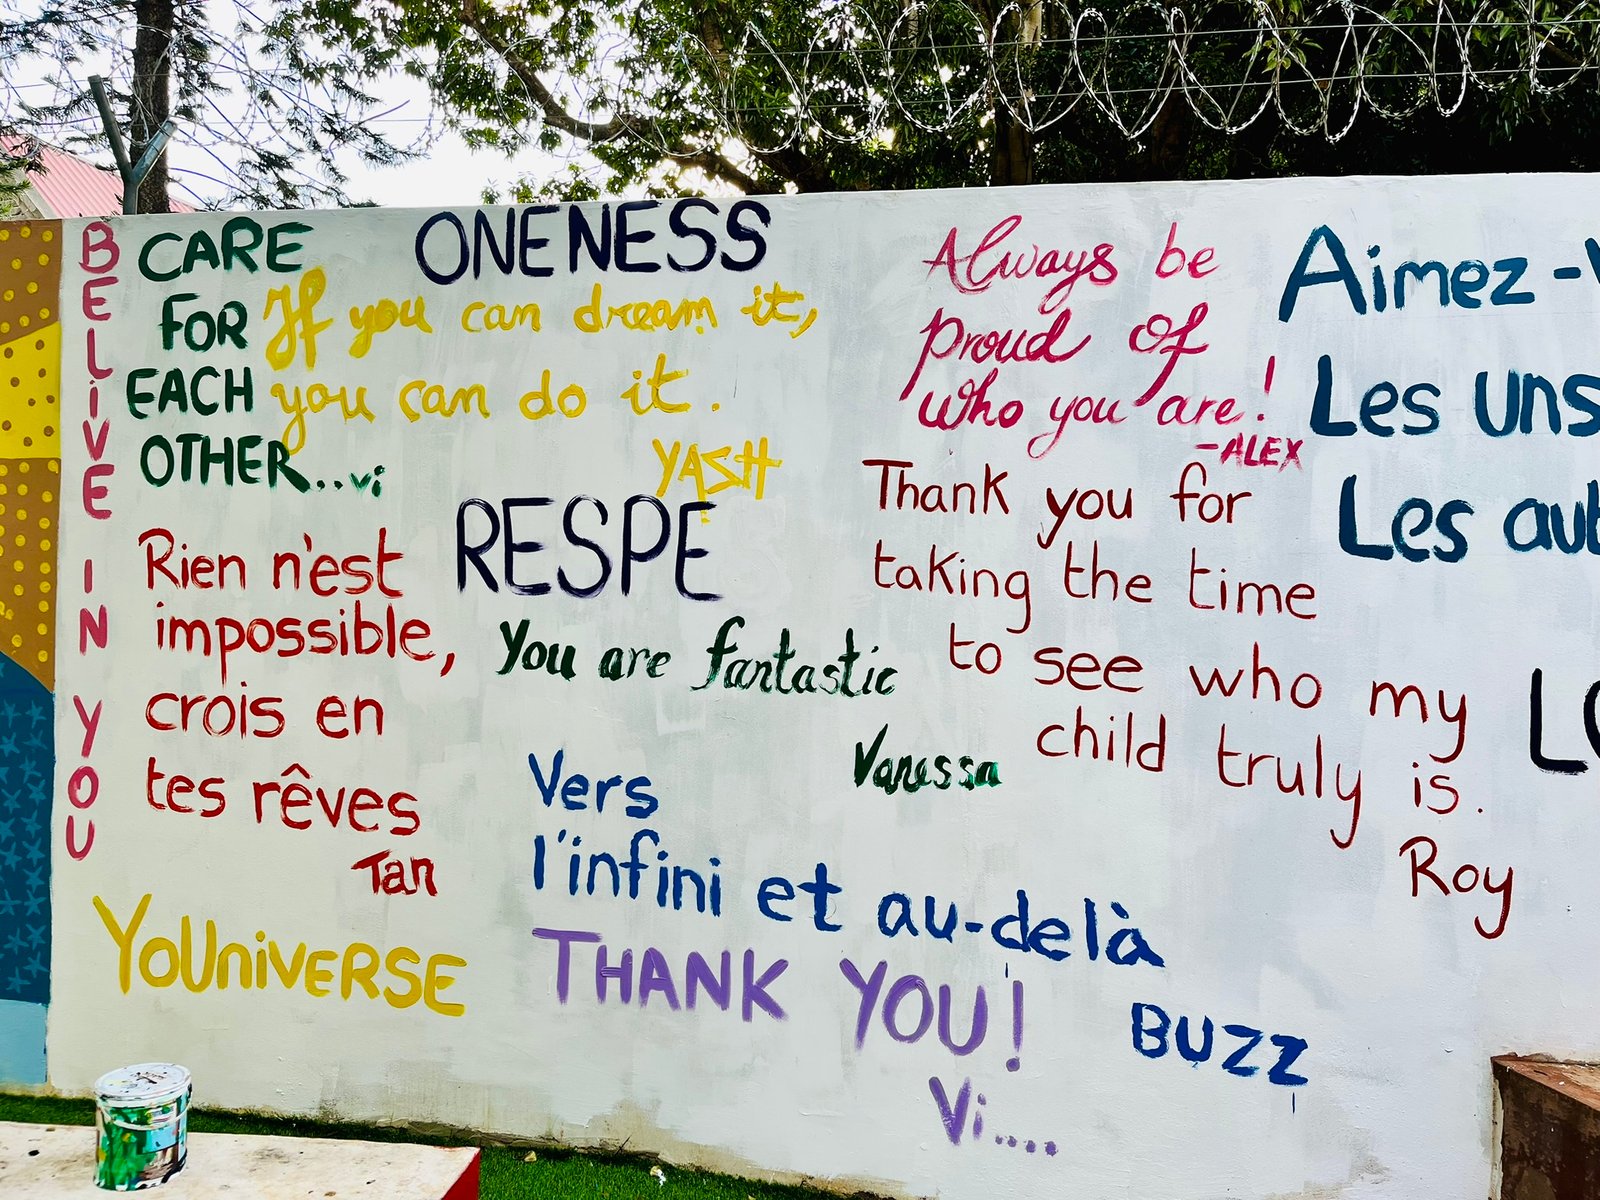 BELIVE IN YOU
CARE
FOR
EACH
OTHER...vi
ONENESS
If you can dream it,
you can do it.
YASH
Always be
proud of
who you are!
-ALEX
Aimez-
Les uns
Les
Rien n'est
impossible,
crois en
tes rêves
Tan
RESPE
You are fantastic
Vanessa
Thank you for
taking the time
to see who my
child truly is.
Roy
Vers
l'infini et au-delà
BUZZ
YOUniVERSE
THANK YOU!
Vi....